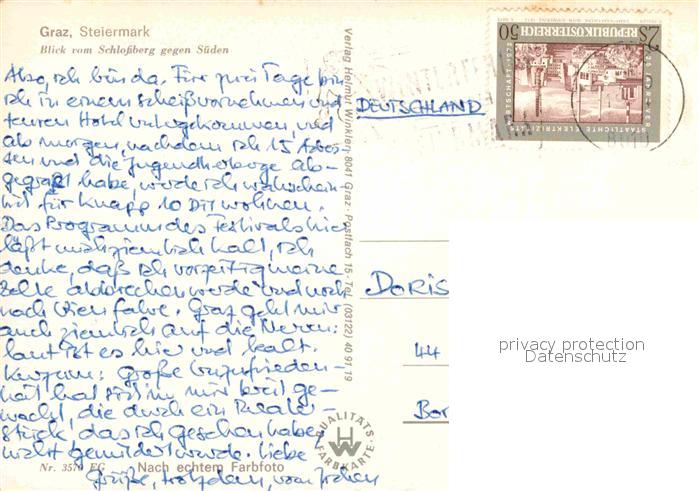 Graz, Steiermark
Blick vom Schloßberg gegen Süden
Also, ich bin da. Für zwei Tage bin
ich in einem scheißvornehmen und
teuren Hotel untergekommen, und
ab morgen, nachdem ich 15 Adres-
sen und die Jugendherberge ab-
gegrast habe, werde ich wahrschein-
lich für knapp 10 DM wohnen.
Das Programm des Festivals hier
läßt mich ziemlich kalt, ich
denke, daß ich vorzeitig meine
Zelte abbrechen werde und noch
nach Wien fahre. Graz geht mir
auch ziemlich auf die Nerven:
laut ist es hier und kalt.
Kurzum: Große Unzufrieden-
heit hat sich in mir breit ge-
macht, die durch ein Theater-
stück, das ich gesehen habe,
nicht gemildert wurde. Liebe
Grüße, trotzdem, von Jochen
Nr. 3570 EG Nach echtem Farbfoto
Verlag Helmut Winkler, 8041 Graz, Postfach 15, Tel. (03122) 46 91 19
QUALITÄTS
HW
FARBKARTE
DEUTSCHLAND
S 2.50
REPUBLIK ÖSTERREICH
25 JAHRE VER
STAATLICHTE ELEKTRIZITÄTS
WIRTSCHAFT · 1972
DORIS
44
Bor
privacy protection
Datenschutz